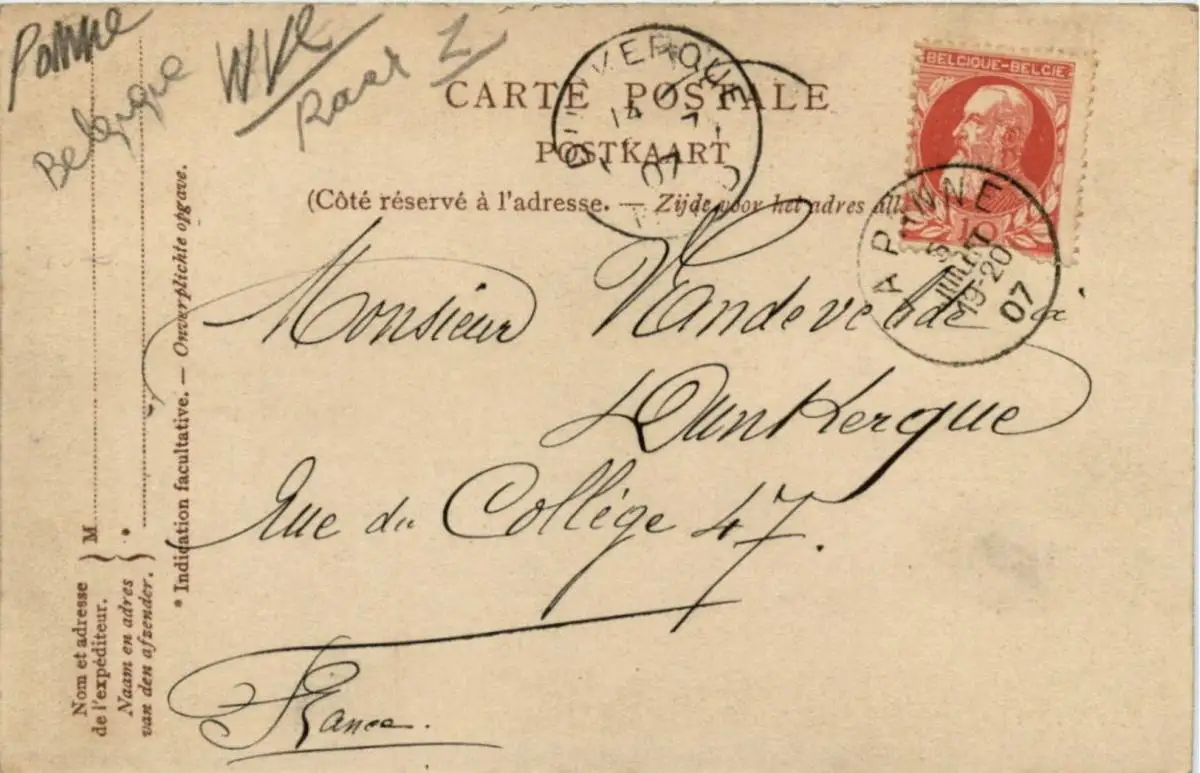 Panne
Belgique
WVL
CARTE POSTALE
POSTKAART
(Côté réservé à l'adresse. — Zijde voor het adres
DUNKERQUE
14
7
07
BELGIQUE-BELGIË
10
LA PANNE
5
JUILLET
19-20
07
Monsieur Vandevelde à
Dunkerque
Rue du Collège 47.
France.
Nom et adresse
de l'expéditeur.
Naam en adres
van den afzender.
M
*
* Indication facultative. — Onverplichte opgave.